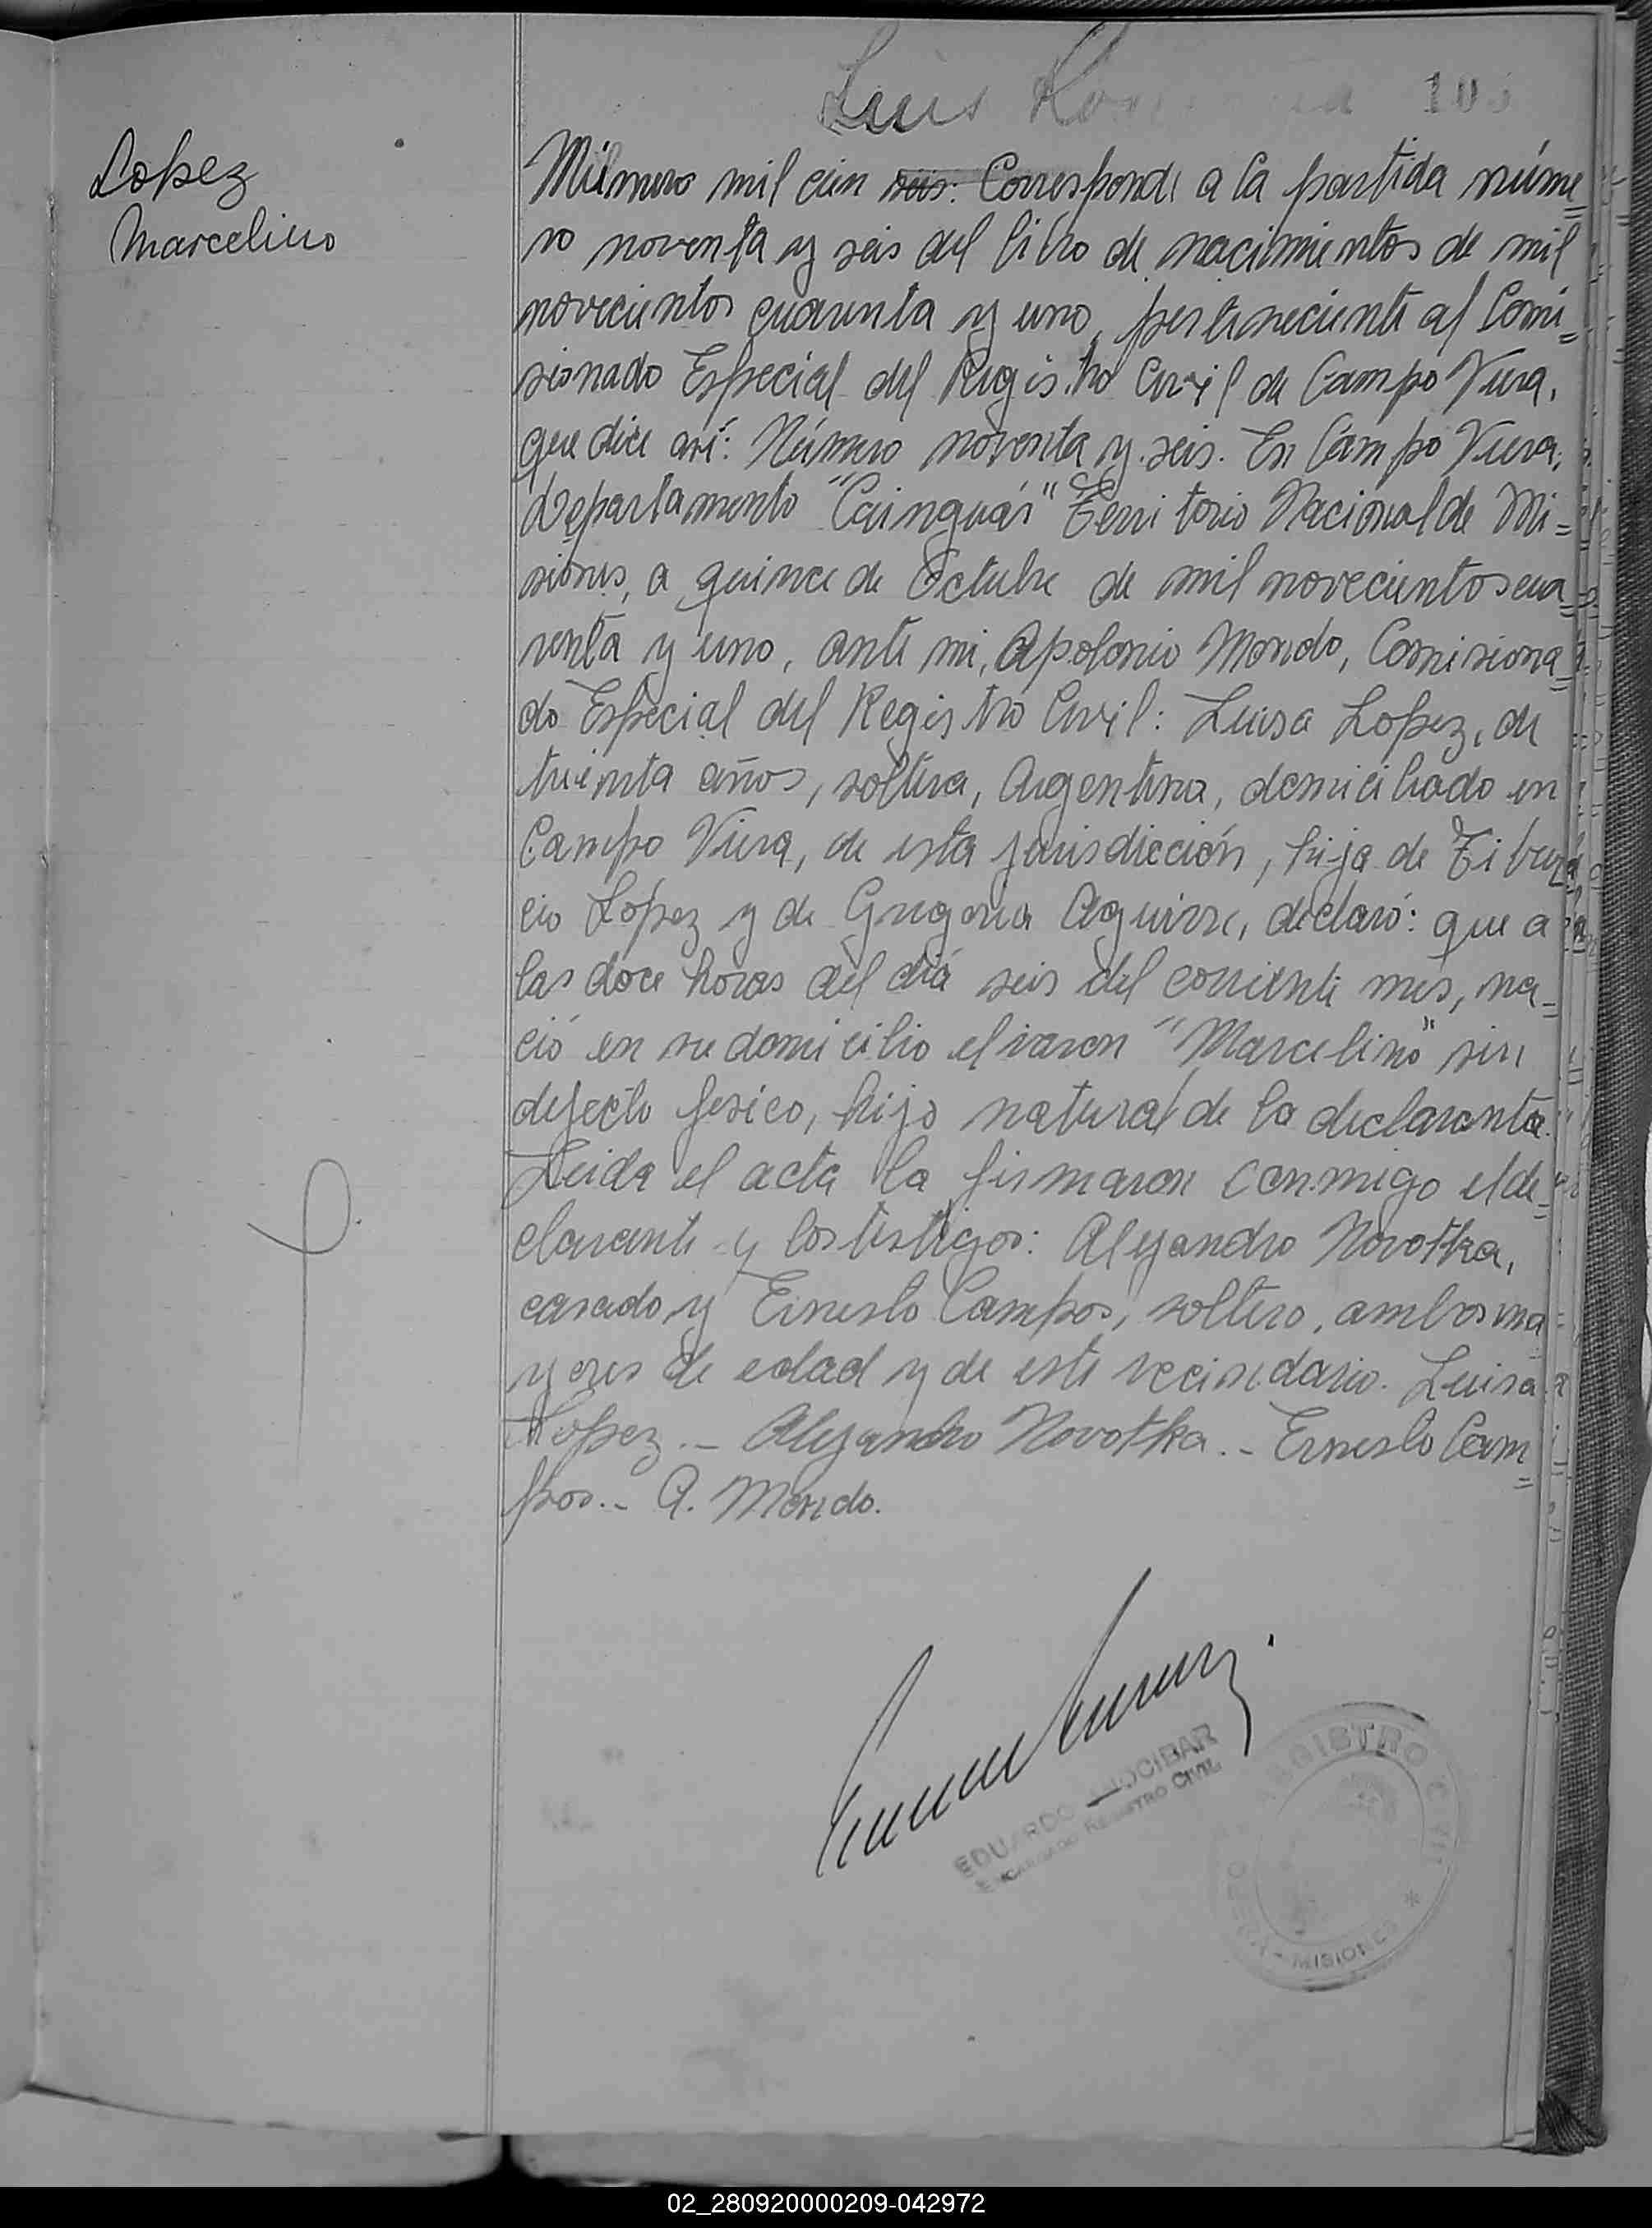 Luis
Lopez
Marcelino
Número mil cien seis: Corresponde a la partida núme=
ro noventa y seis del libro de nacimientos de mil
novecientos cuarenta y uno, perteneciente al Comi=
sionado Especial del Registro Civil de Campo Viera,
que dice así: Número noventa y seis. En Campo Viera,
Departamento "Cainguás" Territorio Nacional de Mi=
siones, a quince de Octubre de mil novecientos cua=
renta y uno, ante mi, Apolonio Mendo, Comisiona=
do Especial del Registro Civil: Luisa Lopez, de
treinta años, soltera, Argentina, domiciliado en
Campo Viera, de esta jurisdicción, hija de Tibur=
cio López y de Gregoria Aguirre, declaró: que a
las doce horas del día seis del corriente mes, na=
ció en su domicilio el varon "Marcelino" sin
defecto fesico, hijo natural de la declaranta.
Leida el acta la firmaron conmigo el de=
clarante y los testigos: Alejandro Novotka,
casado y Ernesto Campos, soltero, ambos ma=
yores de edad y de este vecindario. Luisa
Lopez.- Alejandro Novotka.- Ernesto Cam=
pos.- A. Mendo.
EDUARDO
ENCARGADO REGISTRO CIVIL
REGISTRO CIVIL
MISIONES
02_280920000209-042972